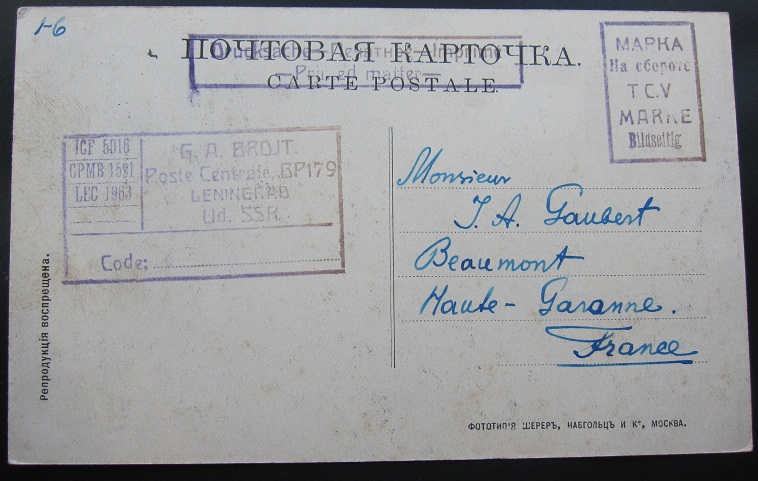 1-6
ПОЧТОВАЯ КАРТОЧКА.
CARTE POSTALE.
Printed matter
МАРКА
На обороте
T.C.V
MARKE
Bildseitig
JCF 5016
CPMB 1581
LEC 1963
G. A. BROJT.
Poste Centrale, BP179
LENINGRAD
Ud. SSR
Code;
Monsieur
J. A. Gaubert
Beaumont
Haute-Garanne.
France
Репродукція воспрещена.
ФОТОТИПІЯ ШЕРЕРЪ, НАБГОЛЬЦЪ И Кº, МОСКВА.